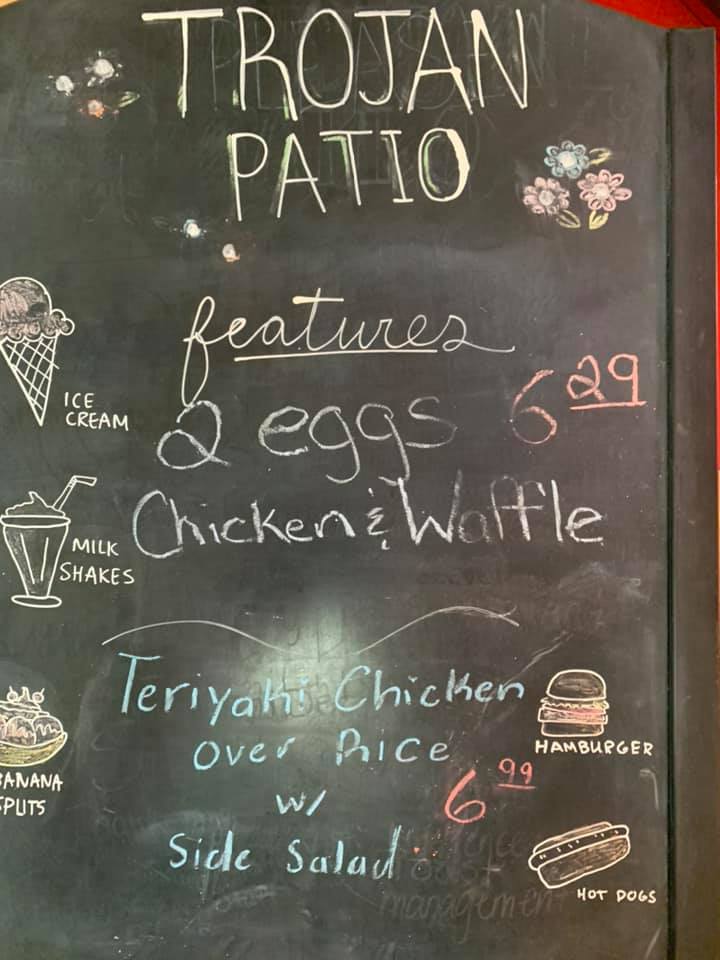 TROJAN
PATIO
features
2 eggs 6 29
Chicken & Waffle
ICE
CREAM
MILK
SHAKES
Teriyaki Chicken
over Rice
w/ 6 99
Side Salad
HAMBURGER
BANANA
SPLITS
HOT DOGS
management